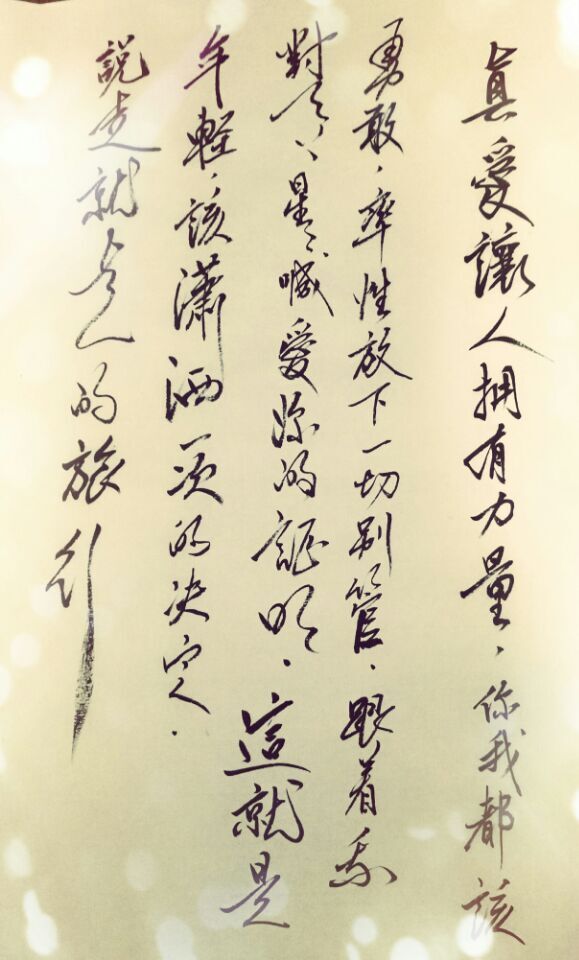 真愛讓人拥有力量，你我都該
勇敢，率性放下一切别管，跟着我
對天上星星喊愛你的証明，這就是
年輕，該瀟洒一次的决定，
說走就走的旅行